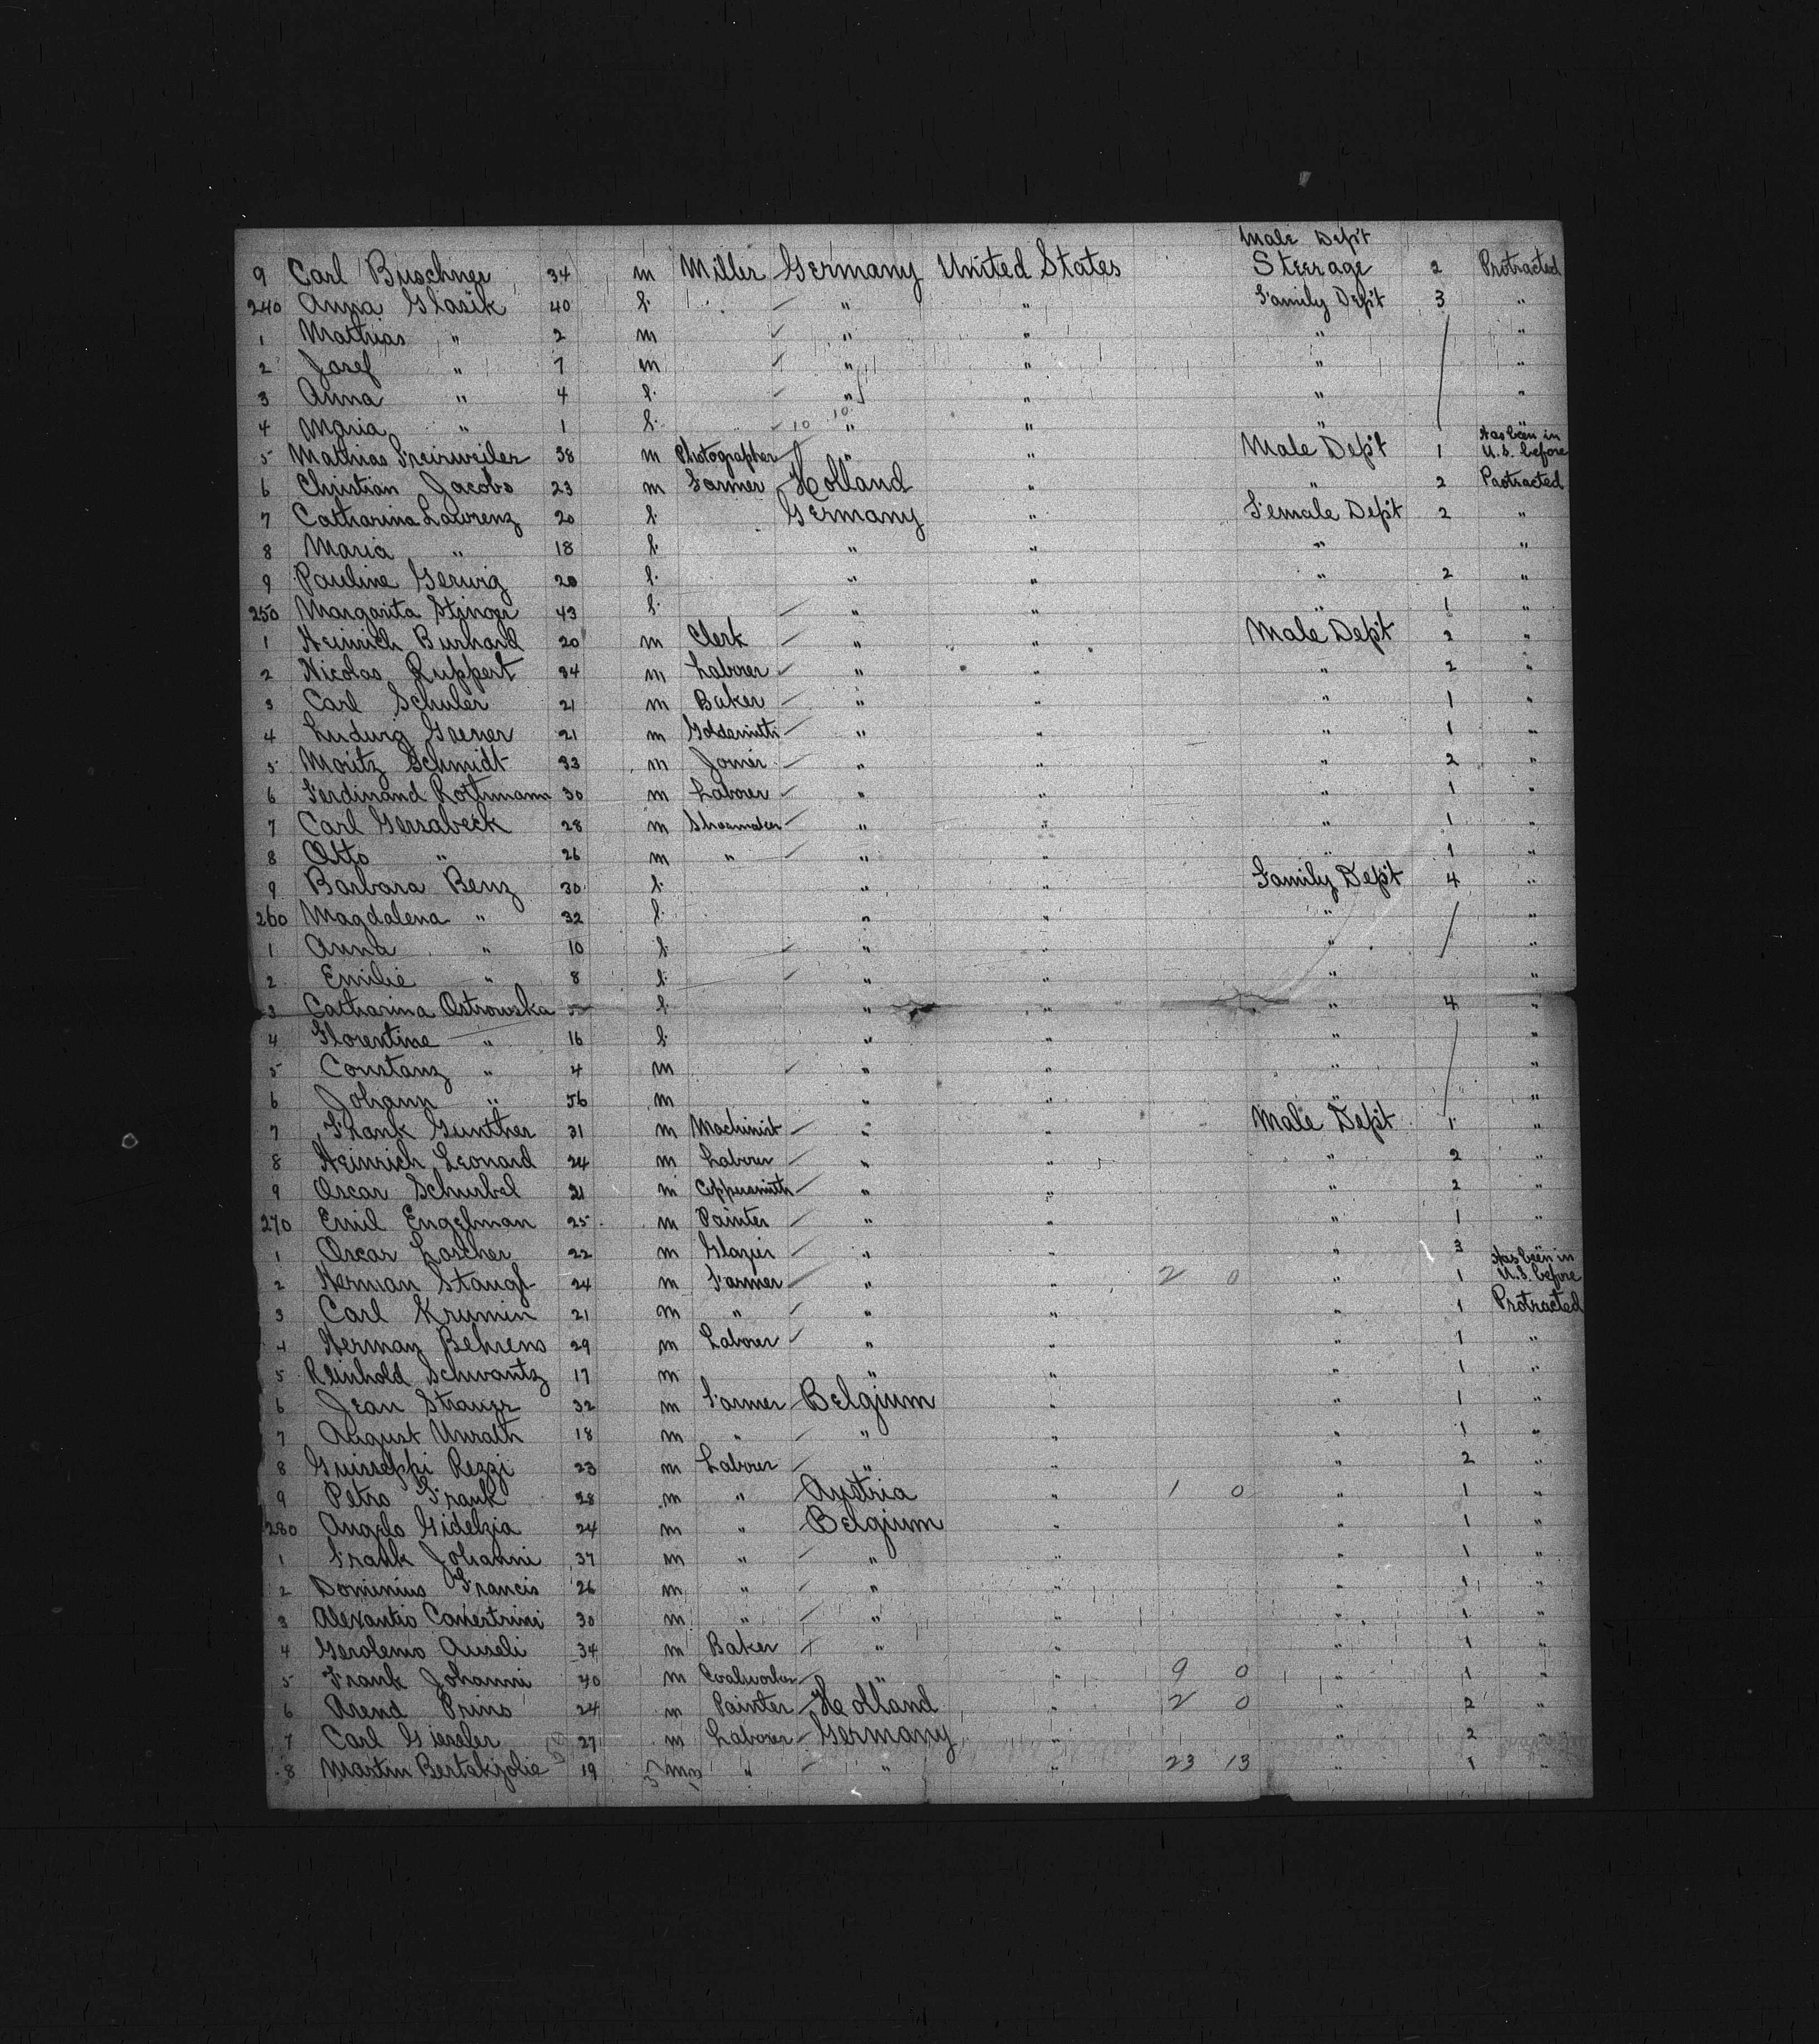 Male Dep't
9 Carl Buschner 34 m Miller Germany United States Steerage 2 Protracted
240 Anna Glasik 40 f. " " Family Dep't 3 "
1 Mathias " 2 m " " " "
2 Josef " 7 m " " " "
3 Anna " 4 f. " " " "
4 Maria " 1 f. 10 10 " " " "
Has been in
5 Mathias Freirweiler 38 m Photographer " " Male Dep't 1 U.S. before
6 Christian Jacobs 23 m Farmer Holland " " 2 Paotracted
7 Catharina Lawrenz 20 f. Germany " Female Dep't 2 "
8 Maria " 18 f. " " " "
9 Pauline Gerwig 20 f. " " " 2 "
250 Margarita Stinger 43 f. " " " 1 "
1 Heinrich Burhard 20 m Clerk " " Male Dep't 2 "
2 Nicolas Ruppert 34 m Laborer " " " 2 "
3 Carl Schuler 21 m Baker " " " 1 "
4 Ludwig Grener 21 m Goldsmith " " " 1 "
5 Moritz Schmidt 33 m Joiner " " " 2 "
6 Ferdinand Rothmann 30 m Laborer " " " 1 "
7 Carl Gersabeck 28 m Shoemaker " " " 1 "
8 Otto " 26 m " " " " 1 "
9 Barbara Benz 30 f. " " Family Dep't 4 "
260 Magdalena " 32 f. " " " "
1 Anna " 10 f. " " " "
2 Emilie " 8 f. " " " "
3 Catharina Ostrowska f. " " " 4 "
4 Florentine " 16 f. " " " "
5 Constanz " 4 m " " " "
6 Johann " 56 m " " " "
7 Frank Gunther 31 m Machinist " " Male Dep't 1 "
8 Heinrich Leonard 24 m Laborer " " " 2 "
9 Oscar Schurbel 21 m Coppersmith " " " 2 "
270 Emil Engelman 25 m Painter " " " 1 "
1 Oscar Loscher 22 m Glazier " " " 3 "
Has been in
2 Herman Staugl 24 m Farmer " " 2 0 " 1 U.S. before
3 Carl Krumin 21 m " " " " 1 Protracted
4 Herman Behrens 29 m Laborer " " " 1 "
5 Reinhold Schwantz 17 m " " " 1 "
6 Jean Stranger 32 m Farmer Belgium " " 1 "
7 August Unrath 18 m " " " " 1 "
8 Guisseppi Rezzi 23 m Laborer " " " 2 "
9 Petro Frank 28 m " Austria " 1 0 " 1 "
280 Angelo Gidelzia 24 m " Belgium " " 1 "
1 Frank Johanni 37 m " " " " 1 "
2 Dominius Francis 26 m " " " " 1 "
3 Alexantio Canestrini 30 m " " " " 1 "
4 Gerolemo Auseli 34 m Baker " " " 1 "
5 Frank Johanni 40 m Coalworker " " 9 0 " 1 "
6 Arend Prins 24 m Painter Holland " 2 0 " 2 "
7 Carl Gieseler 27 m Laborer Germany " " 2 "
8 Martin Bertakjolie 19 m " " " 23 13 " 1 "